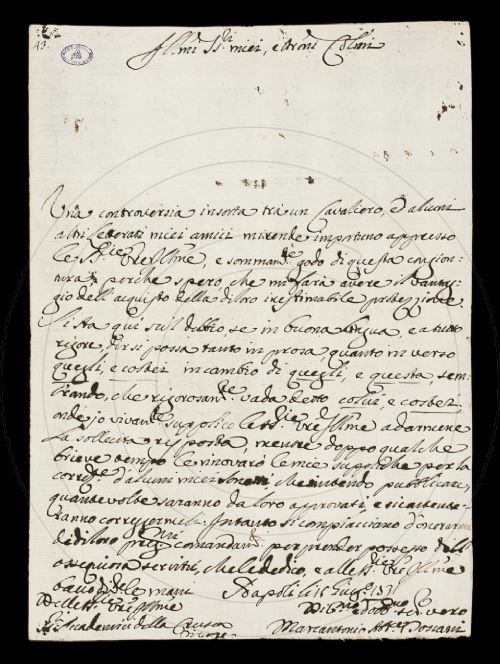 43
Ill.mi SS.ri miei, e Proni Colmi
Una controversia insorta tra un Cavaliero, ed alcuni
altri letterati miei amici mi rende importuno appresso
le SS.rie Vre Ill.me, e godo di questa congion-
tura perche spero, che mi farà avere il vantag-
gio dell'acquisto della di loro inestimabile
Si sta qui sul dubbio se in buona lingua, e a tutto
rigore dir si possa tanto in prosa quanto in verso
quegli, e costei in cambio di quegli, e questa, sem-
brando, che rigorosam.te vada detto colui, e costei
onde io vivam.te supplico le SS.rie Vre Ill.me a darmene
la sollecita risposta, mentre doppo qualche
brieve tempo le rinovarò le mie suppliche per la
correz.ne d'alcuni miei che intendo pubblicare,
quante volte saranno da loro approvati, e si contente-
ranno corregermeli. Intanto si compiacciano d'onorarmi
de di loro comandam.ti per prender possesso dell'
ossequiosa servitù, che le dedico, e alle SS.rie Vre Ill.me
bacio le mani Napoli li 15 Giug.o 1731
Delle SS.rie Vre Ill.me
SS.ri Accademici della Crusca
Firenze
Div.mo ed obb.mo ser. vero
Marcantonio Toscani